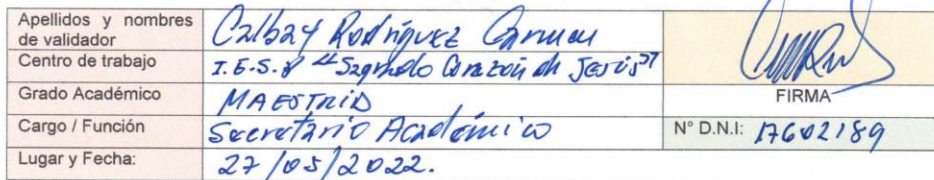 Apellidos y nombres de validador Calbay Rodríguez Carmen
Centro de trabajo I.E.S.P "Sagrado Corazón de Jesús"
Grado Académico MAESTRIA
FIRMA
Cargo / Función Secretario Académico
N° D.N.I: 17602189
Lugar y Fecha: 27/05/2022.